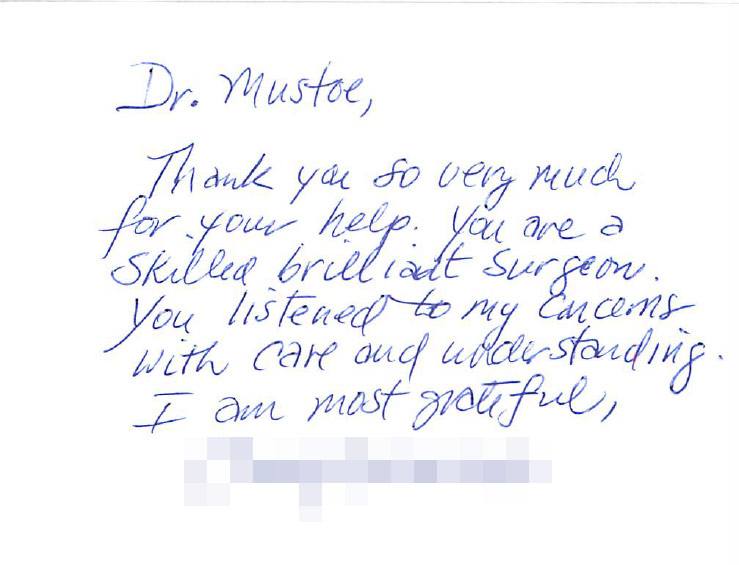 Dr. Mustoe,
Thank you so very much
for your help. You are a
skilled brilliant surgeon.
You listened to my concerns
with care and understanding.
I am most grateful,